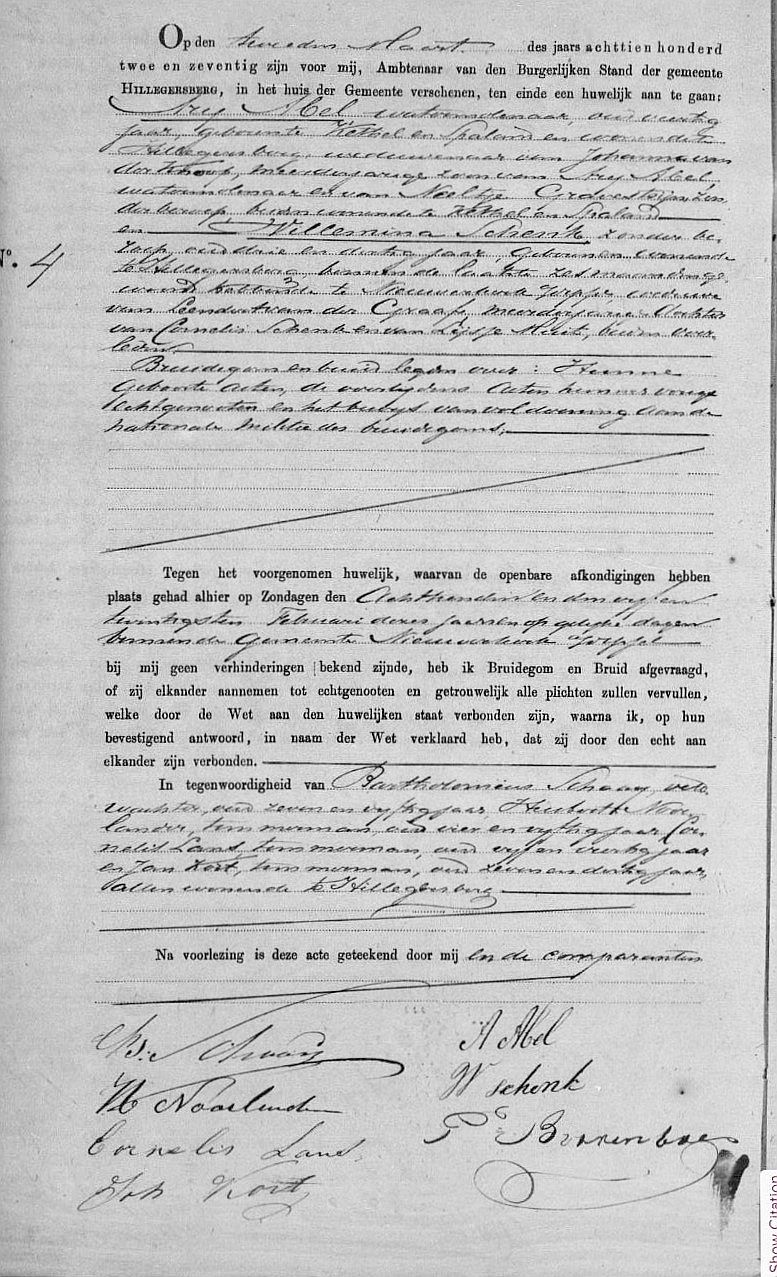 Op den tweeden Maart des jaars achttien honderd
twee en zeventig zijn voor mij, Ambtenaar van den Burgerlijken Stand der gemeente
HILLEGERSBERG, in het huis der Gemeente verschenen, ten einde een huwelijk aan te gaan:
Ary Abel watermolenaar, oud veertig
jaar, geboren te Kethel en Spaland en wonende te
Hillegersberg, weduwenaar van Johanna van
der meerderjarige zoon van Ary Abel
watermolenaar en van Neeltje Gravesteijn, zon
der beroep, beiden wonende te Kethel en Spaland
en Willemina Schenk, zonder be
roep, oud drie en dertig jaar, geboren en wonende
te Hillegersberg binnen de laatste zes maanden ge
woond hebbende te Nieuwerkerk a/d IJssel weduwe
van Leendert van der Graaf, meerderjarige dochter
van Cornelis Schenk en van beiden over
leden,
Bruidegom en bruid leggen over: Hunne
Geboorte acten, de overlijdens acten hunner vorige
echtgenooten en het bewijs van voldoening aan de
nationale militie des bruidegoms,
No. 4
Tegen het voorgenomen huwelijk, waarvan de openbare afkondigingen hebben
plaats gehad alhier op Zondagen den Achttienden en den vijf en
twintigsten Februari dezes jaars en op gelijke dagen
binnen de Gemeente Nieuwerkerk a/d IJssel
bij mij geen verhinderingen bekend zijnde, heb ik Bruidegom en Bruid afgevraagd,
of zij elkander aannemen tot echtgenooten en getrouwelijk alle plichten zullen vervullen,
welke door de Wet aan den huwelijken staat verbonden zijn, waarna ik, op hun
bevestigend antwoord, in naam der Wet verklaard heb, dat zij door den echt aan
elkander zijn verbonden.
In tegenwoordigheid van Bartholomeus Schaay, veld
wachter, oud zeven en vijftig jaar, Huibert Noor
lander, timmerman, oud vier en vijftig jaar Cor
nelis Lans timmerman, oud vijf en veertig jaar
en Jan Kort, timmerman, oud zeven en dertig jaar,
allen wonende te Hillegersberg
Na voorlezing is deze acte geteekend door mij en de comparanten
Bs. Schaay
A Abel
H Noorlander
W Schenk
Cornelis Lans
Joh Kort
Show Citation